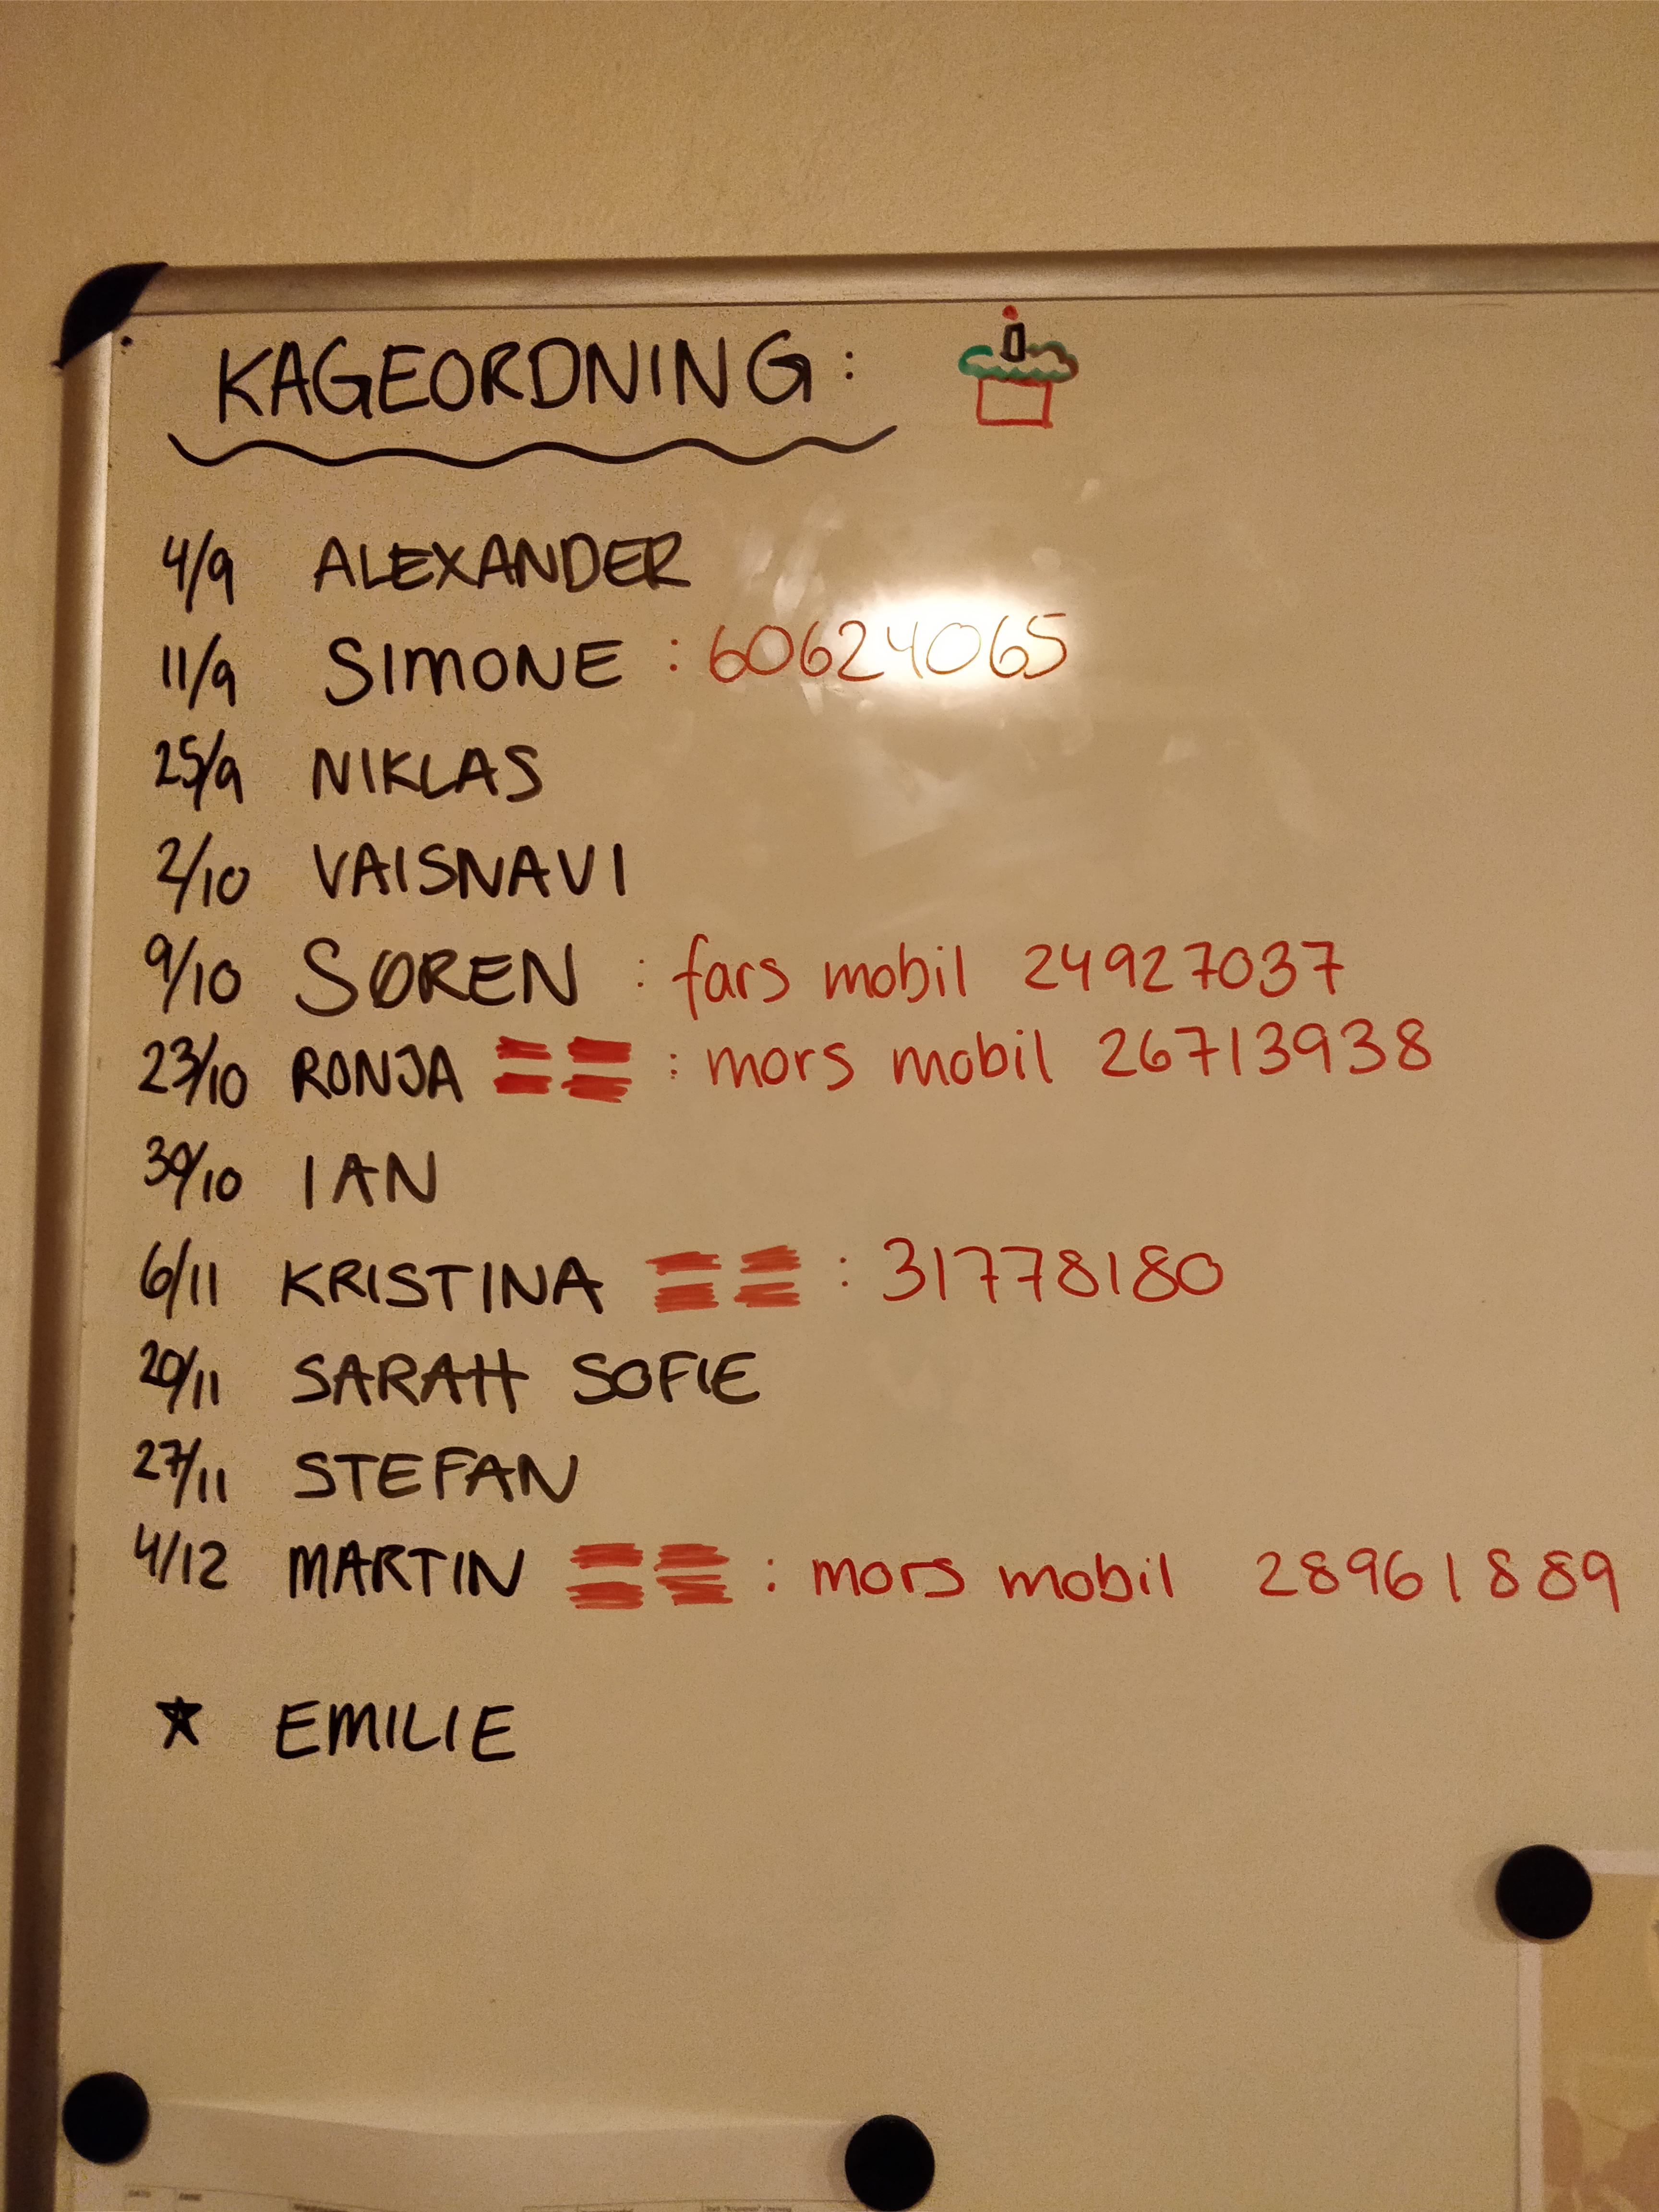 KAGEORDNING:
4/9 ALEXANDER
11/9 SIMONE : 60624065
25/9 NIKLAS
2/10 VAISNAVI
9/10 SØREN : fars mobil 24927037
23/10 RONJA : mors mobil 26713938
30/10 IAN
6/11 KRISTINA : 31778180
20/11 SARAH SOFIE
27/11 STEFAN
4/12 MARTIN : mors mobil 28961889
★ EMILIE